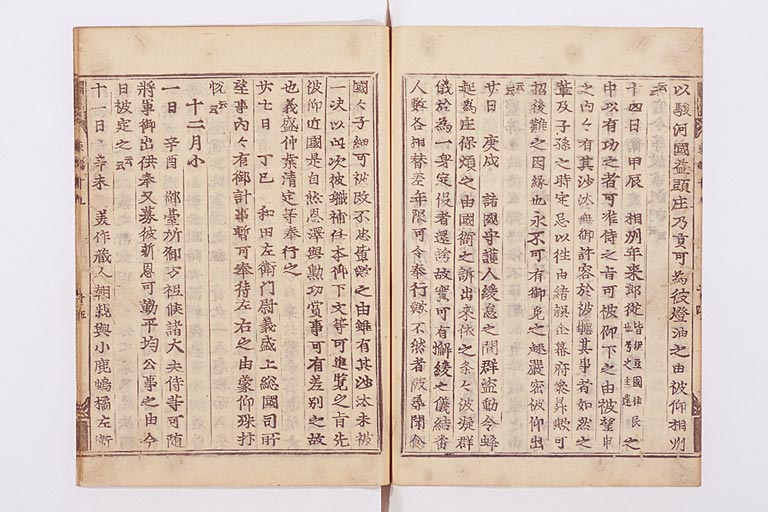 以駿河國益頭庄乃貢可為彼燈油之由被仰相州
云云
十四日 甲辰 相州年来郎従皆伊豆國住民之主達 之
中以有功之者可准侍之旨可被仰下之由被望申
之内々有其沙汰無御許容於被聽其事者如然之
輩及子孫之時定忘以往由緒誤企幕府參昇歟可
招後難之因縁也永不可有御免之趣嚴密被仰出
云云
廿日 庚戌 諸國守護人緩怠之間群盗動令蜂
起為庄保煩之由國衙之訴出来依之条々被凝群
儀於為一身定役者還誇故實可有懈緩之儀結番
人數各相替差年限可令奉行歟不然者被尋聞食
國々子細可被改不忠輩歟之由雖有其沙汰未被
一决以此次彼職補任本御下文等可進覧之旨先
彼仰近國是自然恩澤與勲功賞事可有差別之故
也義盛仲業清定等奉行之
廿七日 丁巳 和田左衛門尉義盛上総國司所
望事内々有御計事暫可奉待左右之由蒙仰殊抃
悦云云
十二月小
一日 辛酉 御臺所御方祗候諸大夫侍等可随
將軍御出供奉又募彼新恩可勤平均公事之由今
日被定之云云
十一日 辛未 美作蔵人朝親與小鹿嶋橘左衛